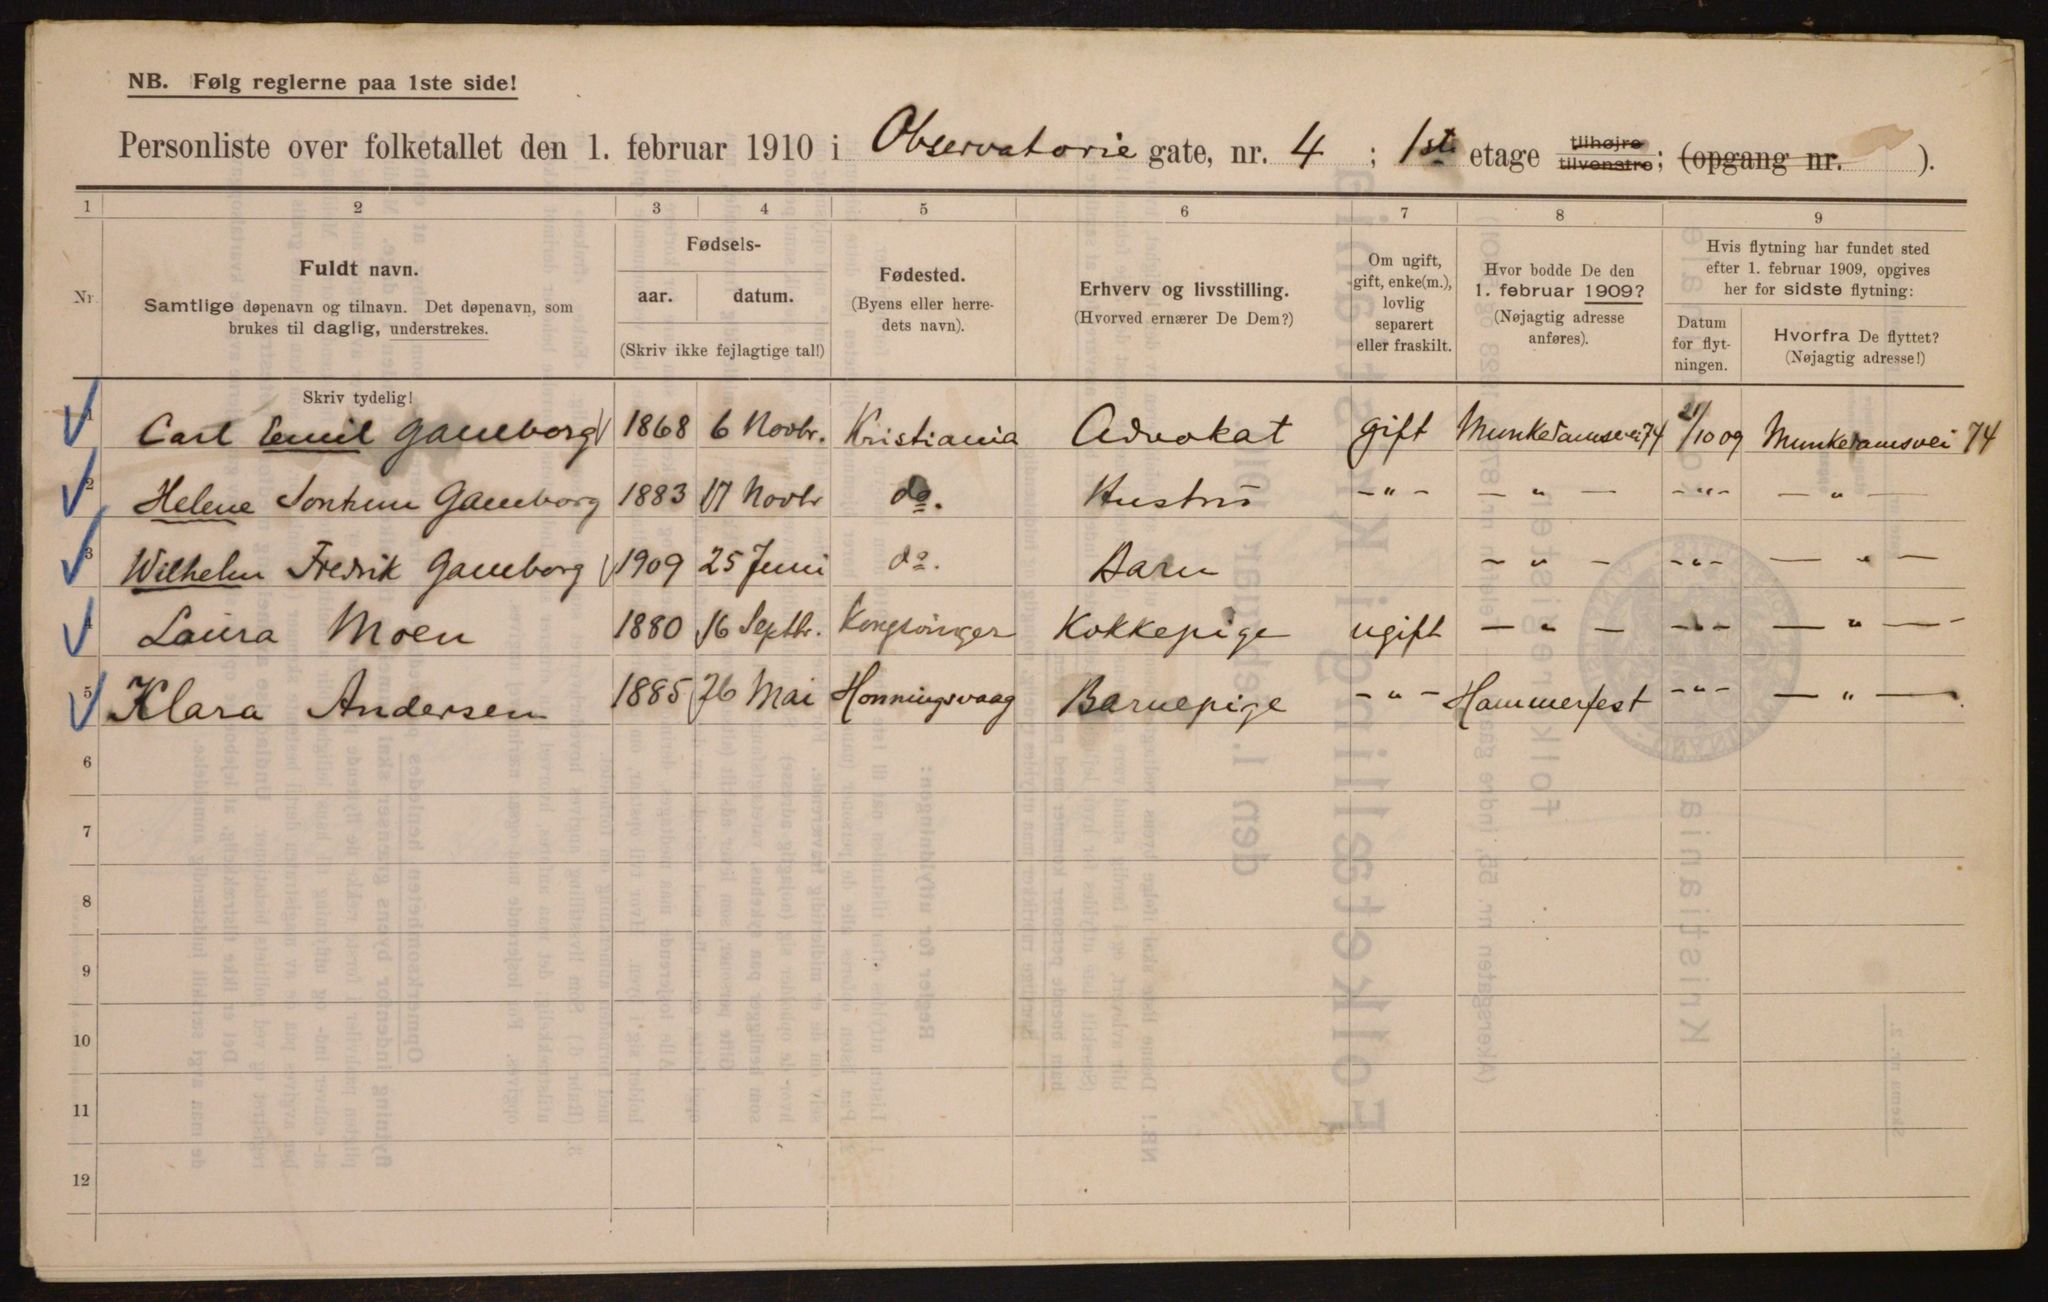 NB. Følg reglerne paa 1ste side!
Personliste over folketallet den 1. februar 1910 i Observatorie gate, nr. 4 ; 1ste etage tilhøjre tilvenstre; (opgang nr. ).
1 2 3 4 5 6 7 8 9
Nr.
Fuldt navn.
Samtlige døpenavn og tilnavn. Det døpenavn, som
brukes til daglig, understrekes.
Fødsels-
aar. datum.
(Skriv ikke fejlagtige tal!)
Fødested.
(Byens eller herre-
dets navn).
Erhverv og livsstilling.
(Hvorved ernærer De Dem?)
Om ugift,
gift, enke(m.),
lovlig
separert
eller fraskilt.
Hvor bodde De den
1. februar 1909?
(Nøjagtig adresse
anføres).
Hvis flytning har fundet sted
efter 1. februar 1909, opgives
her for sidste flytning:
Datum
for flyt-
ningen.
Hvorfra De flyttet?
(Nøjagtig adresse!)
Skriv tydelig!
1 Carl Emil Gamborg 1868 6 Novbr. Kristiania Advokat gift Munkedamsvei 74 21/10 09 Munkedamsvei 74
2 Helene Sontum Gamborg 1883 17 Novbr do. Hustru -"- - " - -"- - " -
3 Wilhelm Fredrik Gamborg 1909 25 Juni do. Barn - " - -"- - " -
4 Laura Moen 1880 16 Septbr. Kongsvinger Kokkepige ugift - " - -"- - " -
5 Klara Andersen 1885 26 Mai Honningsvaag Barnepige -"- Hammerfest -"- - " -
6
7
8
9
10
11
12